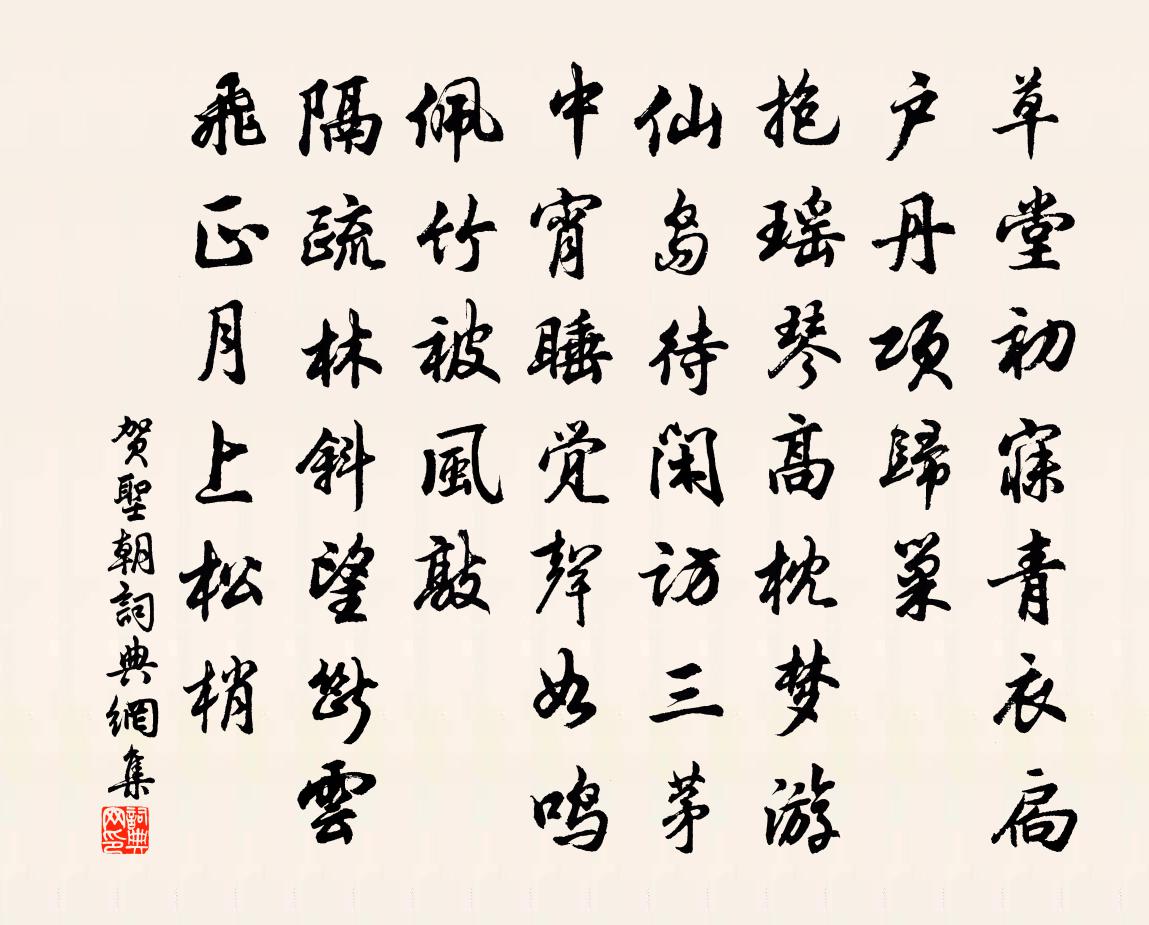 草堂初寐青衣扃
户丹项歸巢
抱瑶琴高枕梦游
仙岛待闲访三茅
中宵睡觉聲如鸣
佩竹被風敲
隔疏林斜望断雲
飛正月上松梢
贺聖朝詞典網集
詞典网印